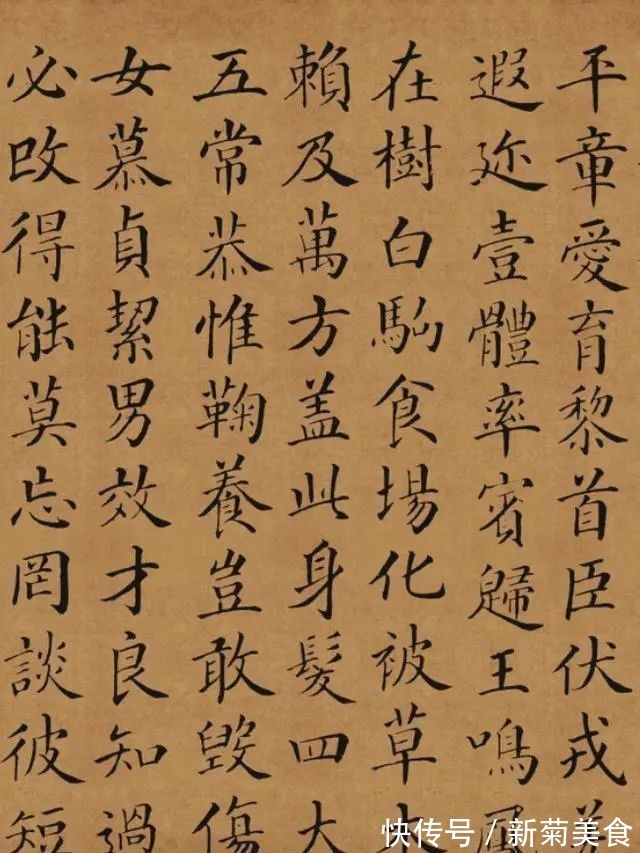 平章愛育黎首臣伏戎
遐迩壹體率賓歸王鳴
在樹白駒食場化被草
賴及萬方盖此身髮四大
五常恭惟鞠養豈敢毀傷
女慕貞絜男效才良知過
必改得能莫忘罔談彼短
快传号 / 新菊美食